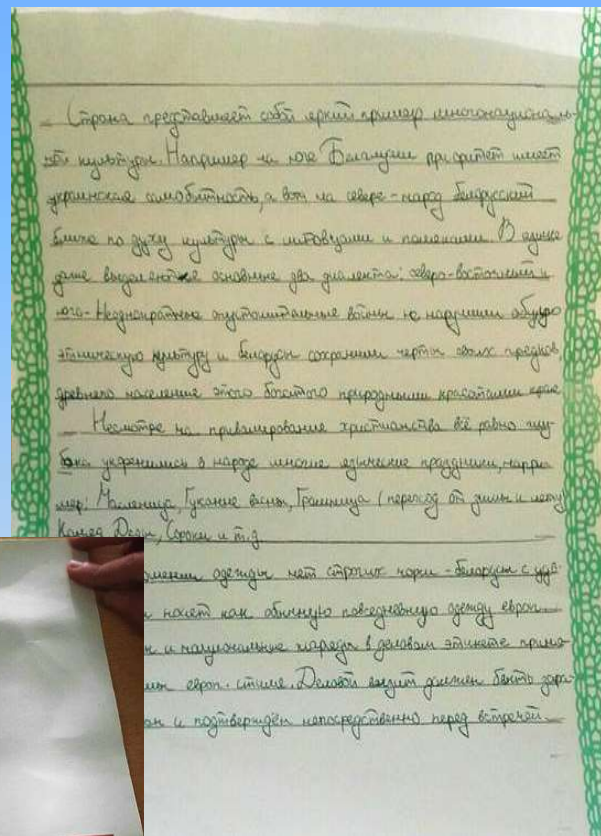 Страна представляет собой яркий пример многонациональ-
ной культуры. Например на юге Беларуси приоритет имеет
украинская самобытность, а вот на севере - народ белорусский
ближе по духу культуры с литовцами и поляками. В языке
даже выделяются основные два диалекта: северо-восточный и
юго- Неоднократные опустошительные войны не нарушили общую
этническую культуру и белорусы сохранили черты своих предков,
древнего население этого богатого природными красотами крае
Несмотре на превалирование христианства всё равно глу-
боко укоренились в народе многие языческие праздники, напри-
мер: Масленица, Гуканне вясны, Грамница (переход от зимы к лету)
Коляд Сороки и т.д
одежды нет строгих норм - белорусы с удо-
носят как обычную повседневную одежду европ.
и национальные наряды в деловом этикете прин
европ. стиле. Деловой визит должен быть зара-
и подтверждён непосредственно перед встречей